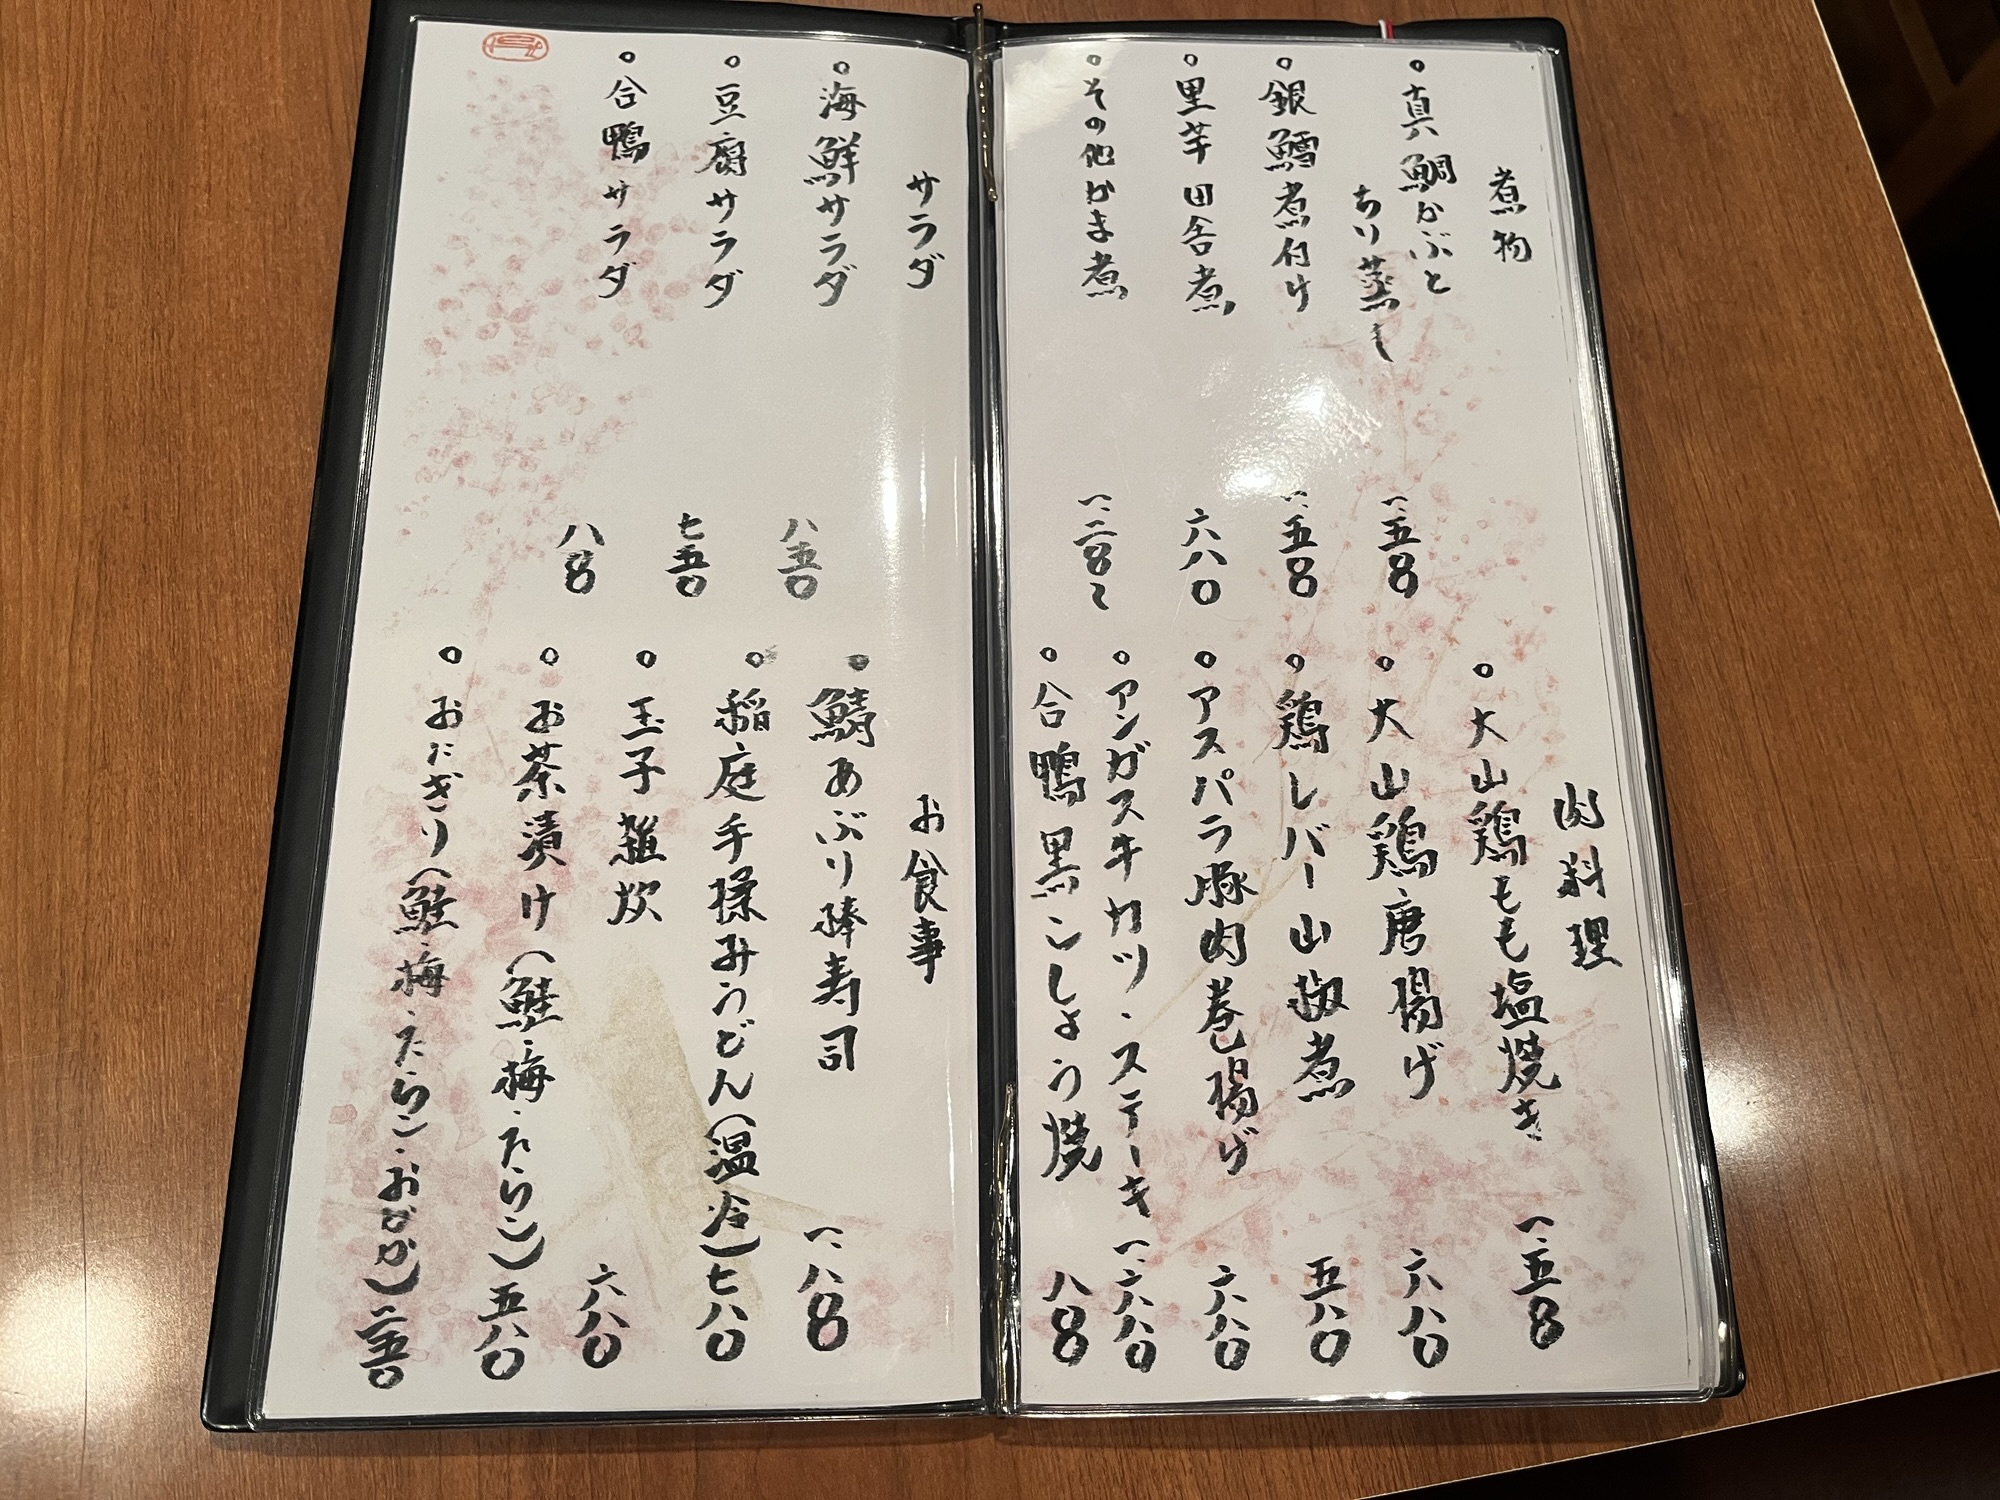 煮物
。真鯛かぶと
ちり蒸し
一、五〇〇
。銀鱈煮付け
一、五〇〇
。里芋田舎煮
六八〇
。その他かま煮
一、二〇〇〜
肉料理
。大山鶏もも塩焼き
一、五〇〇
。大山鶏唐揚げ
六八〇
。鶏レバー山椒煮
五八〇
。アスパラ豚肉巻き揚げ
六八〇
。アンガス牛カツ・ステーキ
一、六八〇
。合鴨黒こしょう焼
八〇〇
サラダ
。海鮮サラダ
八五〇
。豆腐サラダ
七五〇
。合鴨サラダ
八〇〇
お食事
。鯖あぶり棒寿司
一、八〇〇
。稲庭手揉みうどん(温・冷)
七八〇
。玉子雑炊
六八〇
。お茶漬け(鮭・梅・たらこ)
五八〇
。おにぎり(鮭・梅・たらこ・おかか)
二五〇